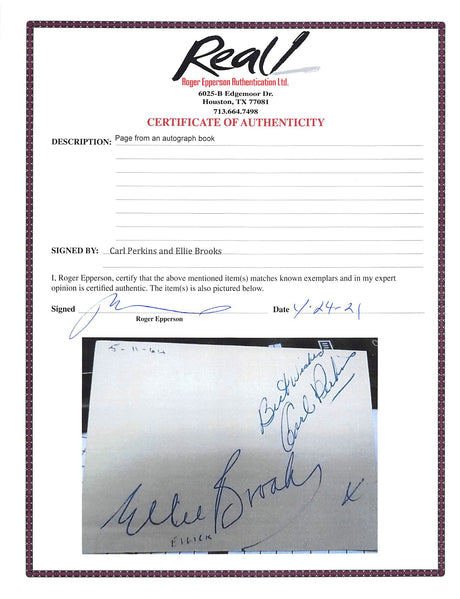 Real!
Roger Epperson Authentication Ltd.
6025-B Edgemoor Dr.
Houston, TX 77081
713.664.7498
CERTIFICATE OF AUTHENTICITY
DESCRIPTION: Page from an autograph book
SIGNED BY: Carl Perkins and Ellie Brooks
I, Roger Epperson, certify that the above mentioned item(s) matches known exemplars and in my expert
opinion is certified authentic. The item(s) is also pictured below.
Signed Date 4-24-21
Roger Epperson
5-11-64
Best Wishes
Carl Perkins
Ellie Brooks x